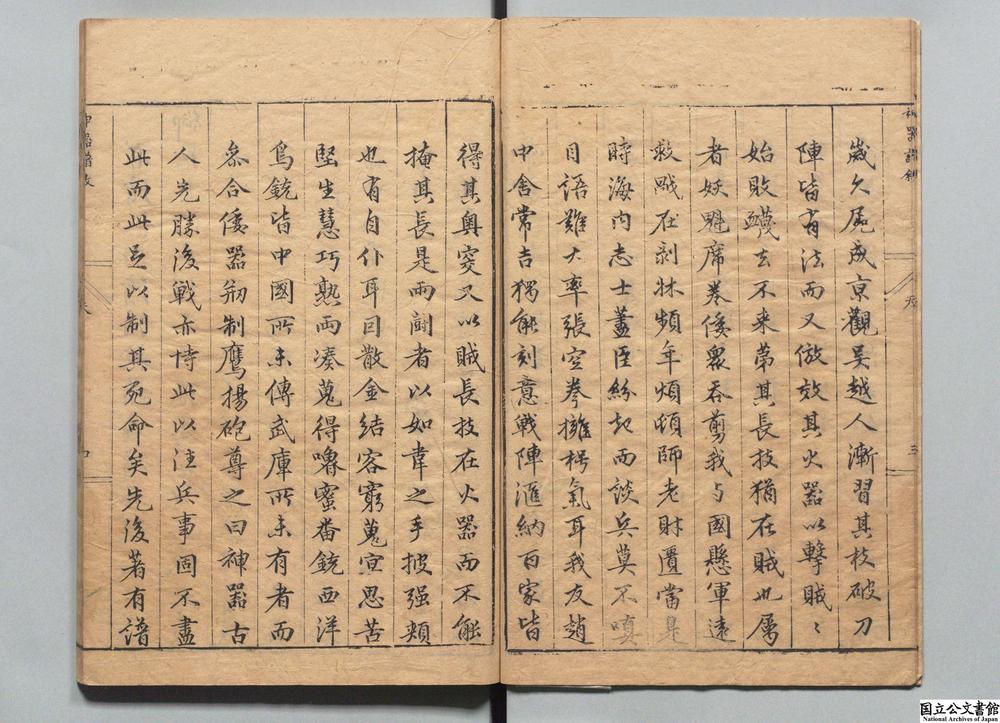 歲久屍成京觀吳越人漸習其技破刀
陣皆有法而又倣效其火器以擊賊〻
始敗衊去不来苐其長技猶在賊也属
者妖魁席卷倭衆吞剪我与國懸軍遠
救戰在剥牀頻年煩頓師老財匱當是
時海内志士藎臣紛起而談兵莫不嗔
目語難大率張空拳擁楞氣耳我友趙
中舍常吉獨能刻意戰陣滙納百家皆
得其奥窔又以賊長技在火器而不能
掩其長是两鬪者以如韋之手披强頬
也有自仆耳囙散金結客窮蒐宣思苦
堅生慧巧熟两凑蒐得嚕蜜畨銃西洋
鳥銃皆中國所未傳武庫所未有者而
叅合倭器刱制鷹揚砲尊之曰神器古
人先勝後戰亦恃此以注兵事固不盡
此而此足以制其死命矣先後著有譜
神器譜敘
三
国立公文書館
National Archives of Japan